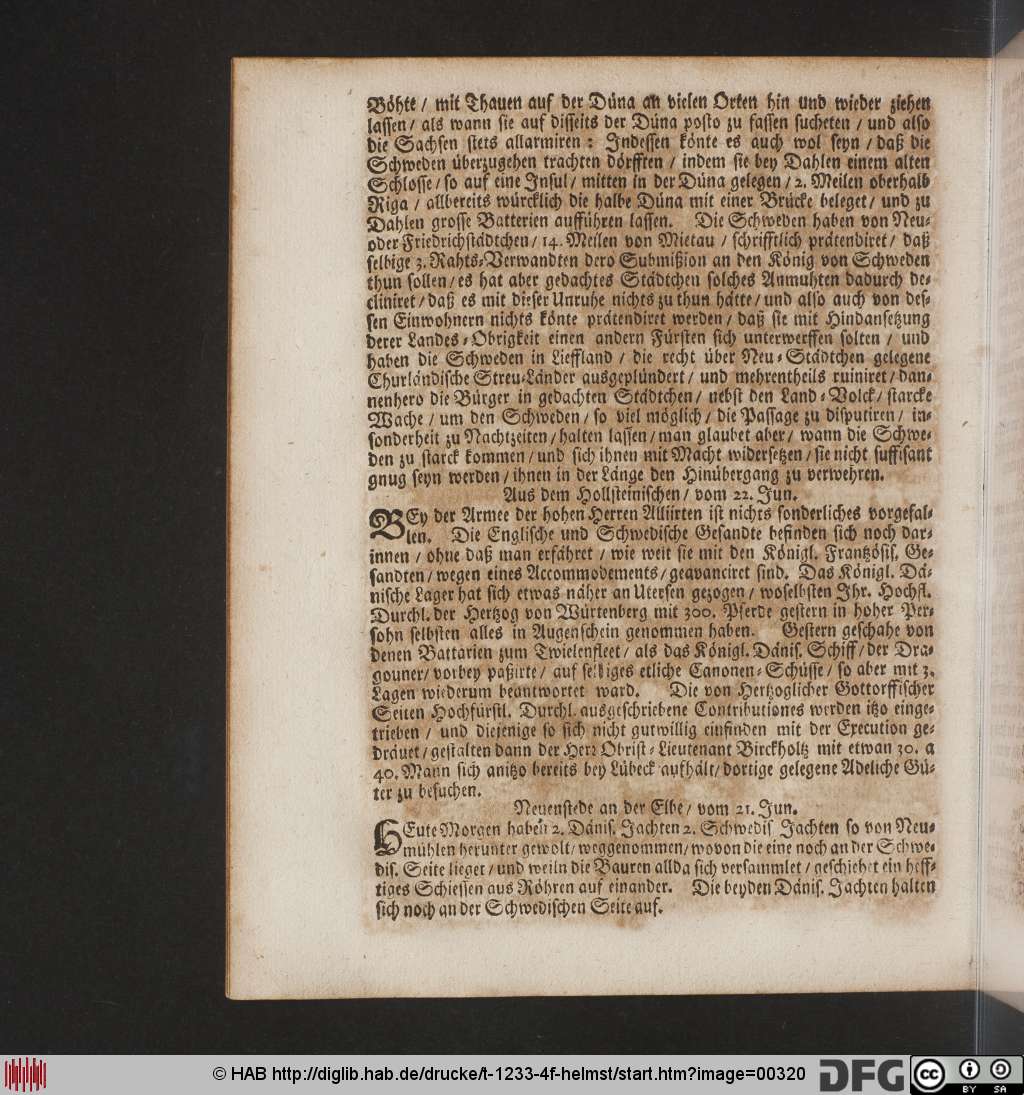 Böhte / mit Thauen auf der Düna an vielen Orten hin und wieder ziehen
lassen / als wann sie auf disseits der Düna posto zu fassen sucheten / und also
die Sachsen stets allarmiren: Indessen könte es auch wol seyn / daß die
Schweden überzugehen trachten dörfften / indem sie bey Dahlen einem alten
Schlosse / so auf eine Insul / mitten in der Düna gelegen / 2. Meilen oberhalb
Riga / allbereits würcklich die halbe Düna mit einer Brücke beleget / und zu
Dahlen grosse Batterien aufführen lassen. Die Schweden haben von Neu-
oder Friedrichstädtchen / 14. Meilen von Mietau / schrifftlich prätendiret / daß
selbige 3. Rahts-Verwandten dero Submißion an den König von Schweden
thun sollen / es hat aber gedachtes Städtchen solches Anmuhten dadurch de-
cliniret / daß es mit dieser Unruhe nichts zu thun hätte / und also auch von des-
sen Einwohnern nichts könte prätendiret werden / daß sie mit Hindansetzung
derer Landes-Obrigkeit einen andern Fürsten sich unterwerffen solten / und
haben die Schweden in Lieffland / die recht über Neu-Städtchen gelegene
Churländische Streu-Länder ausgeplündert / und mehrentheils ruiniret / dan-
nenhero die Bürger in gedachten Städtchen / nebst den Land-Volck / starcke
Wache / um den Schweden / so viel möglich / die Passage zu disputiren / in-
sonderheit zu Nachtzeiten / halten lassen / man glaubet aber / wann die Schwe-
den zu starck kommen / und sich ihnen mit Macht widersetzen / sie nicht suffisant
gnug seyn werden / ihnen in der Länge den Hinübergang zu verwehren.
Aus dem Hollsteinischen / vom 22. Jun.
BEy der Armee der hohen Herren Alliirten ist nichts sonderliches vorgefal-
len. Die Englische und Schwedische Gesandte befinden sich noch dar-
innen / ohne daß man erfähret / wie weit sie mit den Königl. Frantzösis. Ge-
sandten / wegen eines Accommodements / geavanciret sind. Das Königl. Dä-
nische Lager hat sich etwas näher an Utersen gezogen / woselbsten Ihr. Hochfl.
Durchl. der Hertzog von Würtenberg mit 300. Pferde gestern in hoher Per-
sohn selbsten alles in Augenschein genommen haben. Gestern geschahe von
denen Battarien zum Twielenfleet / als das Königl. Dänis. Schiff / der Dra-
gouner / vorbey paßirte / auf selbiges etliche Canonen-Schüsse / so aber mit 3.
Lagen wiederum beantwortet ward. Die von Hertzoglicher Gottorffischer
Seiten Hochfürstl. Durchl. ausgeschriebene Contributiones werden itzo einge-
trieben / und diejenige so sich nicht gutwillig einfinden mit der Execution ge-
dräuet / gestalten dann der Herr Obrist-Lieutenant Birckholtz mit etwan 30. a
40. Mann sich anitzo bereits bey Lübeck aufhält / dortige gelegene Adeliche Gü-
ter zu besuchen.
Neuenstede an der Elbe / vom 21. Jun.
HEute Morgen haben 2. Dänis. Jachten 2. Schwedis Jachten so von Neu-
mühlen herunter gewolt / weggenommen / wovon die eine noch an der Schwe-
dis. Seite lieget / und weiln die Bauren allda sich versammlet / geschiehet ein heff-
tiges Schiessen aus Röhren auf einander. Die beyden Dänis. Jachten halten
sich noch an der Schwedischen Seite auf.
© HAB http://diglib.hab.de/drucke/t-1233-4f-helmst/start.htm?image=00320
DFG
cc BY SA